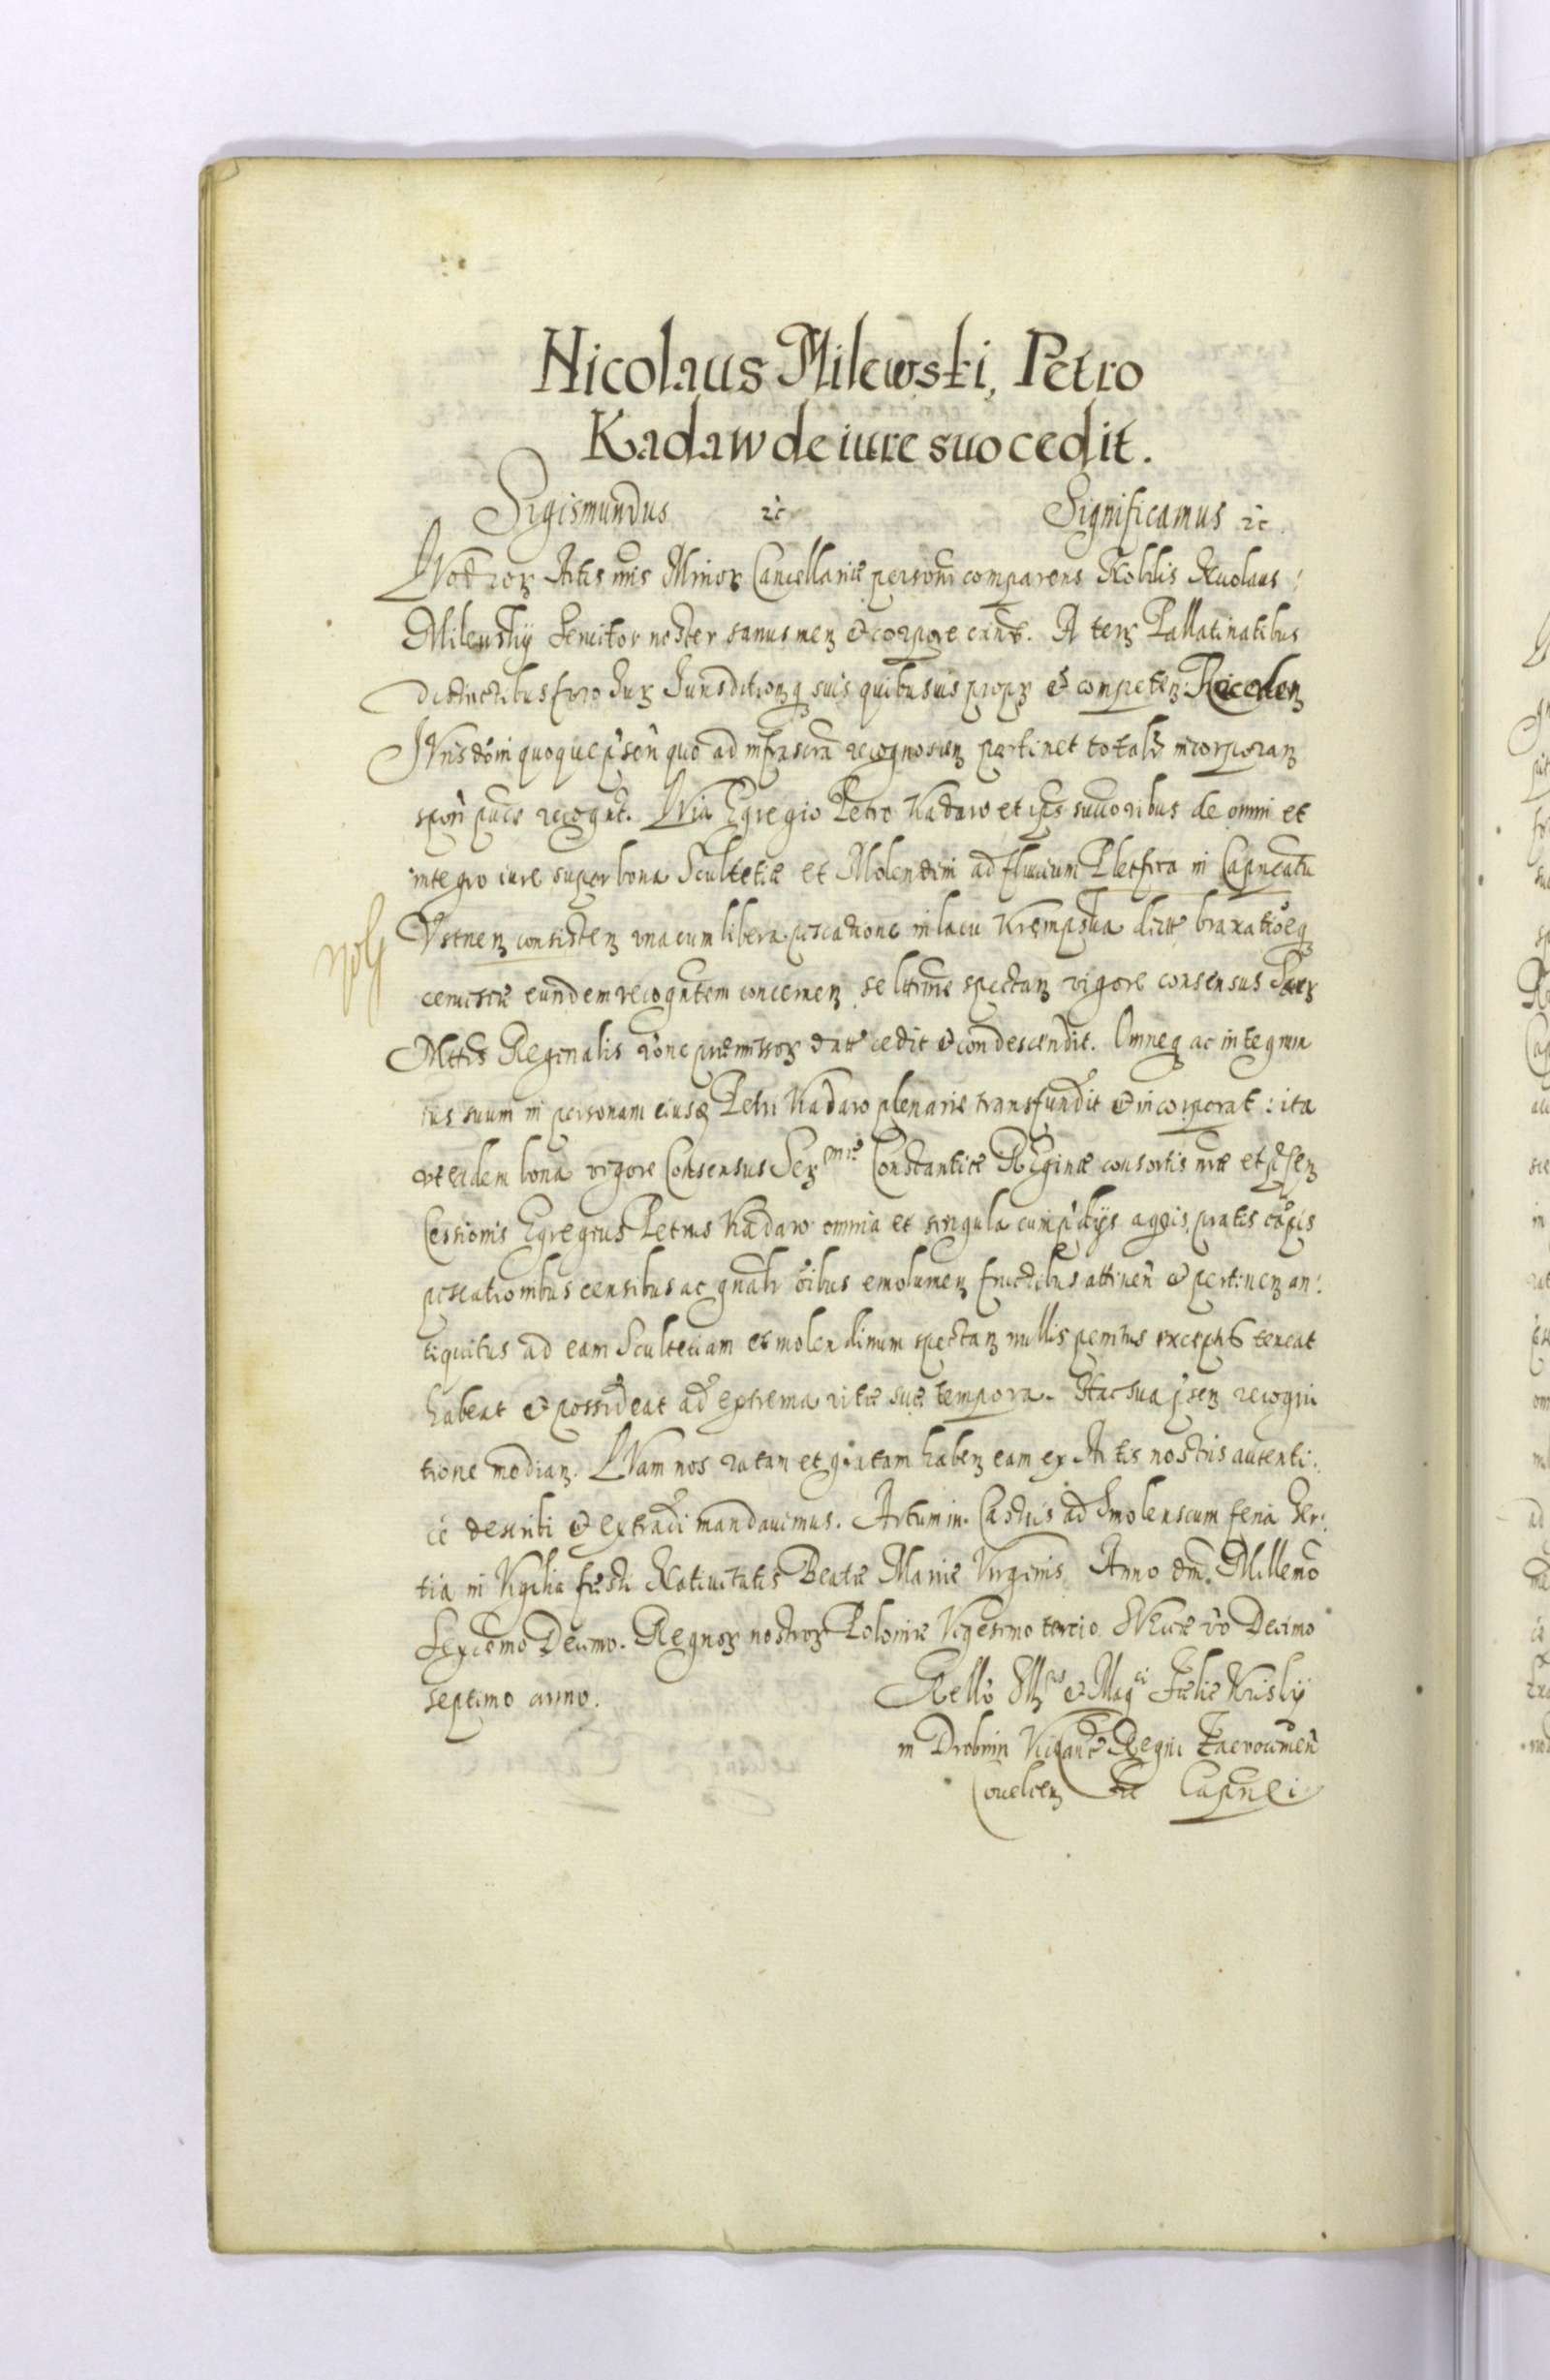 Nicolaus Milewski, Petro
Kadaw de iure suo cedit.
Sigismundus etc Significamus etc.
Quod cor Actis nris Minor Cancellariæ personr comparens Nobilis Nicolaus
Milewskÿ Seruitor noster sanus men et corpore exns. A terr Pallatinatibus
districtibus foro Iur Iurisditionq suis quibusuis propr et competen: Receden
IVrisdoni quoque psen quo ad infrascra recognoscen pertinet totalr incorporan
spon pub recognt. Quia Egregio Petro Kadaw et ips succoribus de omni et
integro iure super bona Scultetiæ et Molendini ad fluuium Pletfica in Capneatu
nols
Vstnen consisten vna cum libera piscatione in lacu Krempska dictæ braxatioeq
ceruisiæ eundem recogntem concernen se spectan vigore consensus Sacr
Mttis Reginalis rone præmissor datæ cedit et condescendit. Omneq ac integrum
ius suum in personam eiusd Petri Kadaw plenarie transfundit et incorporat: ita
vt eadem bona vigore Consensus Sermæ Constantiæ Reginæ consortis nræ et psen
Cessionis Egregius Petrus Kadaw omnia et singula cum pdÿs agris, pratis capis
piscationibus censibus ac gnalr oibus emolumen fructibus attinen et pertinen an:
tiquitus ad eam Scultetiam et molendinum spectan nullis penitus exceptis teneat
habeat et possideat ad extrema vitæ suæ tempora. Hac sua psen recogni
tione median. Quam nos ratam et gratam haben eam ex Actis nostris autenti:
ce describi et extradi mandauimus. Actum in Castris ad Smolenscum feria ter:
tia in Vigilia festi Natiuitatis Beatæ Mariæ Virginis Anno dni Millemo
Sexcemo Decimo. Regnor nostror Poloniæ Vigesimo tercio Sueciæ vo Decimo
septimo anno.
Rello Illris et Magci Felic Krislÿ
in Drobnin Vicanc Regni
Capnei